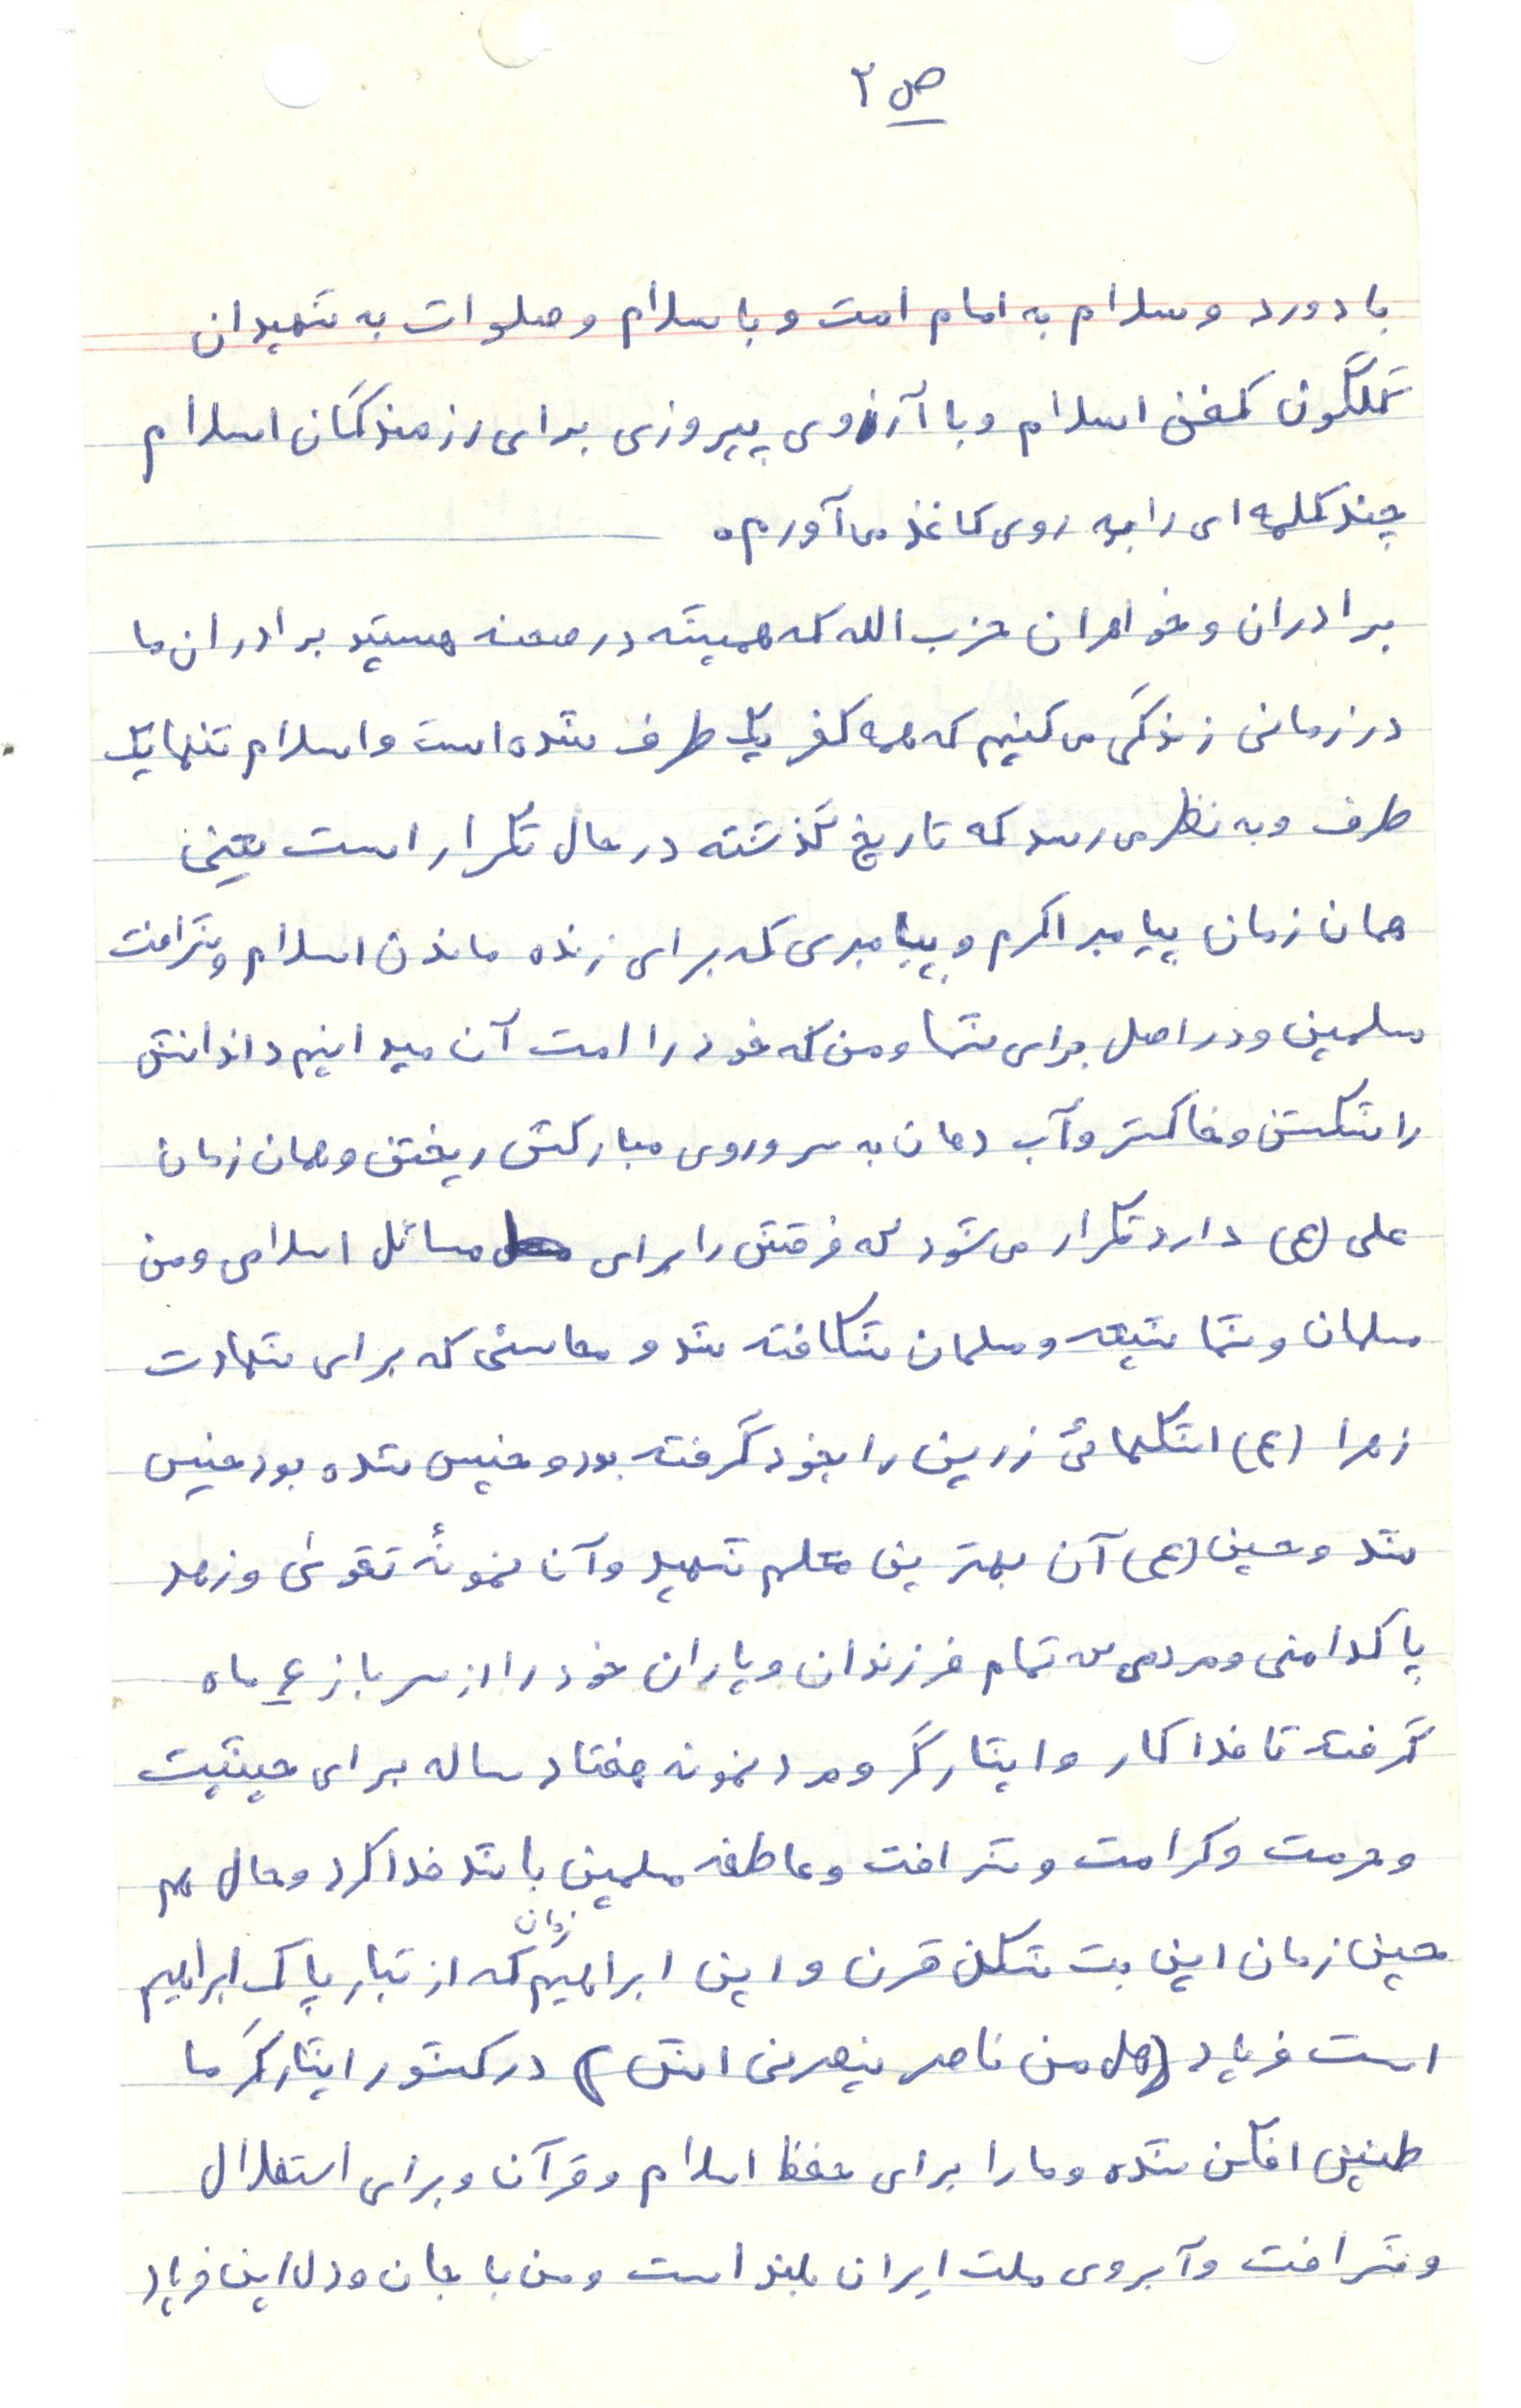 ص ۲
با دورد و سلام به امام امت و با سلام و صلوات به شهیدان
گلگون کفن اسلام و با آرزوی پیروزی برای رزمندگان اسلام
چند کلمه ای را به روی کاغذ می آورم.
برادران و خواهران حزب الله که همیشه در صحنه هستید برادران ما
در زمانی زندگی می کنیم که همه کفر یک طرف شده است و اسلام تنها یک
طرف و به نظر می رسد که تاریخ گذشته در حال تکرار است یعنی
همان زمان پیامبر اکرم و پیامبری که برای زنده ماندن اسلام و شرافت
مسلمین و در اصل برای شما و من که خود را امت آن میدانیم دندانش
را شکستن و خاکستر و آب دهان به سر و روی مبارکش ریختن و همان زمان
علی (ع) دارد تکرار می شود که فرقش را برای مسائل اسلامی و من
مسلمان و شما شیعه و مسلمان شکافته شد و محاسنی که برای شهادت
زهرا (ع) اشکهائی زرین را بخود گرفته بود و خیس شده بود خیس
شد و حسین (ع) آن بهترین معلم شهید و آن نمونهٔ تقوی و زهد
پاکدامنی و مردمی که تمام فرزندان و یاران خود را از سرباز ۶ ماه
گرفته تا فداکار و ایثارگر و مرد نمونه هفتاد ساله برای حیثیت
و حرمت و کرامت و شرافت و عاطفه مسلمین باشد فدا کرد و حال هم
حسین زمان این بت شکن قرن و این ابراهیم زمان که از تبار پاک ابراهیم
است فریاد (هل من ناصر ینصرنی اش) در کشور ایثارگر ما
طنین افکن شده و ما را برای حفظ اسلام و قرآن و برای استقلال
و شرافت و آبروی ملت ایران بلند است و من با جان و دل این فریاد